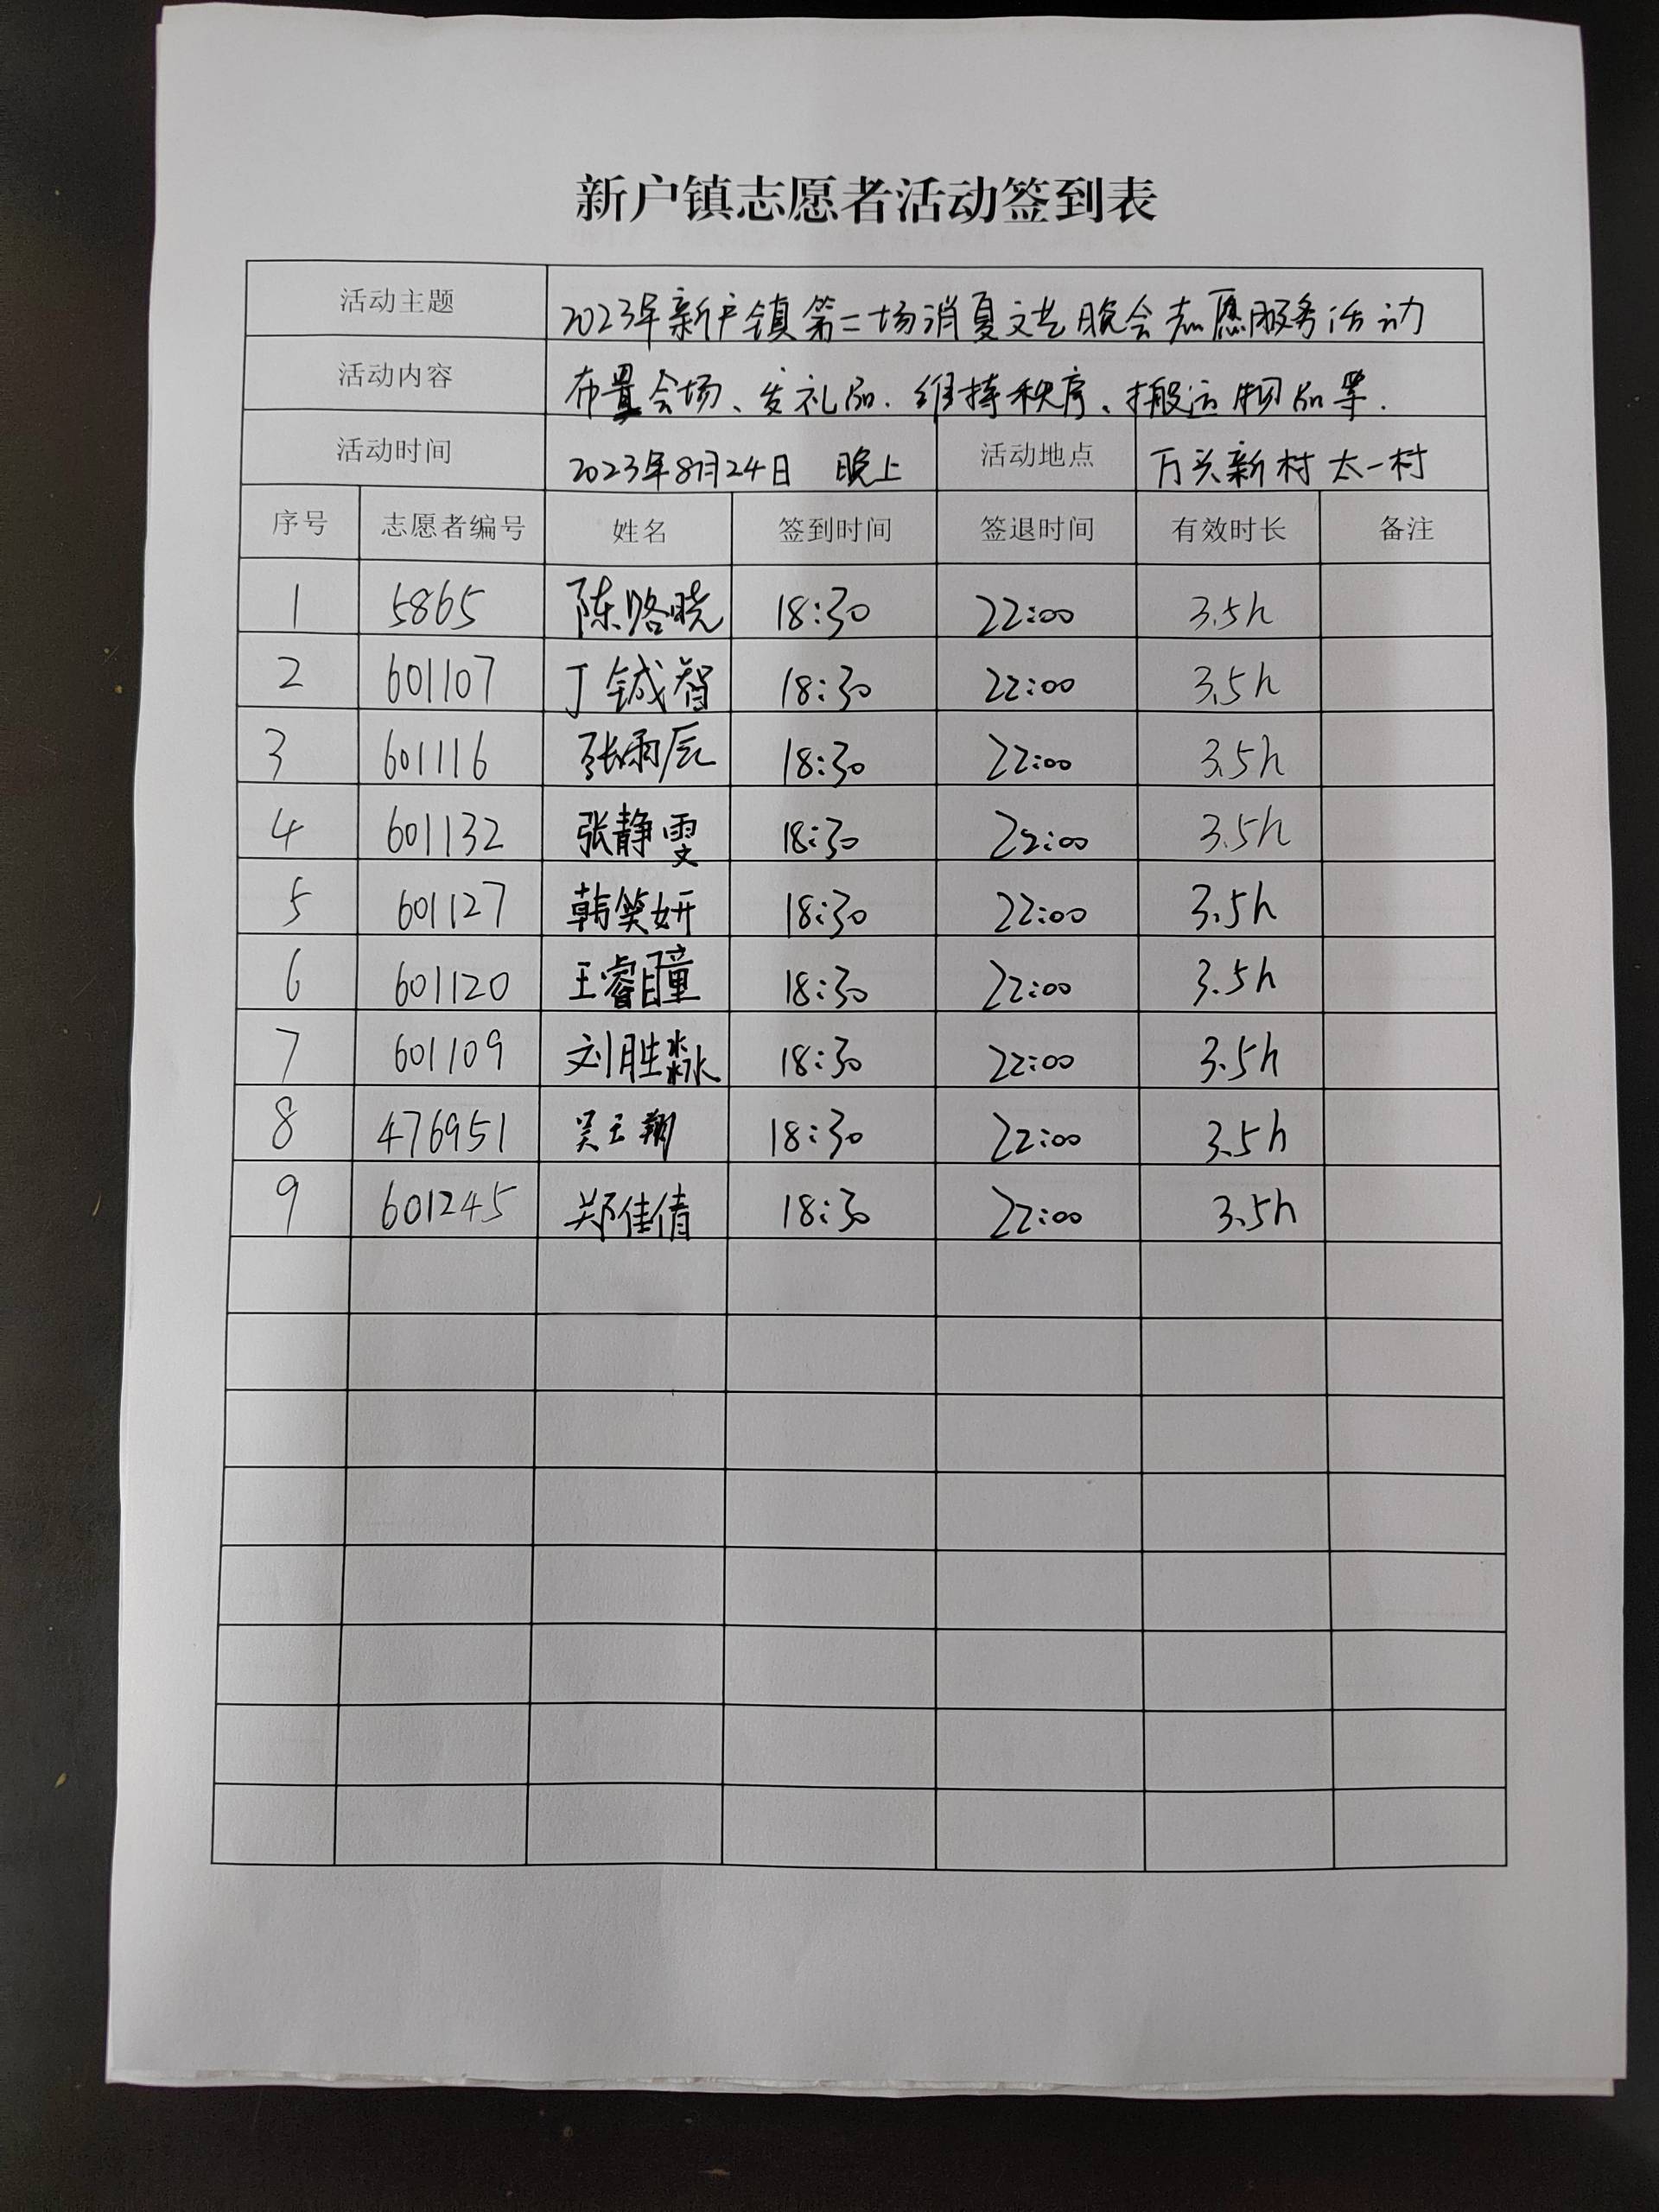 新户镇志愿者活动签到表
活动主题 2023年新户镇第二场消夏文艺晚会志愿服务活动
活动内容 布置会场、发礼品.维持秩序、搬运物品等.
活动时间 2023年8月24日 晚上 活动地点 万头新村 太一村
序号 志愿者编号 姓名 签到时间 签退时间 有效时长 备注
1 5865 陈晓 18:30 22:00 3.5h
2 601107 丁铖智 18:30 22:00 3.5h
3 601116 张雨辰 18:30 22:00 3.5h
4 601132 张静雯 18:30 22:00 3.5h
5 601127 韩笑妍 18:30 22:00 3.5h
6 601120 王睿瞳 18:30 22:00 3.5h
7 601109 刘胜淼 18:30 22:00 3.5h
8 476951 吴玉翔 18:30 22:00 3.5h
9 601245 郑佳倩 18:30 22:00 3.5h